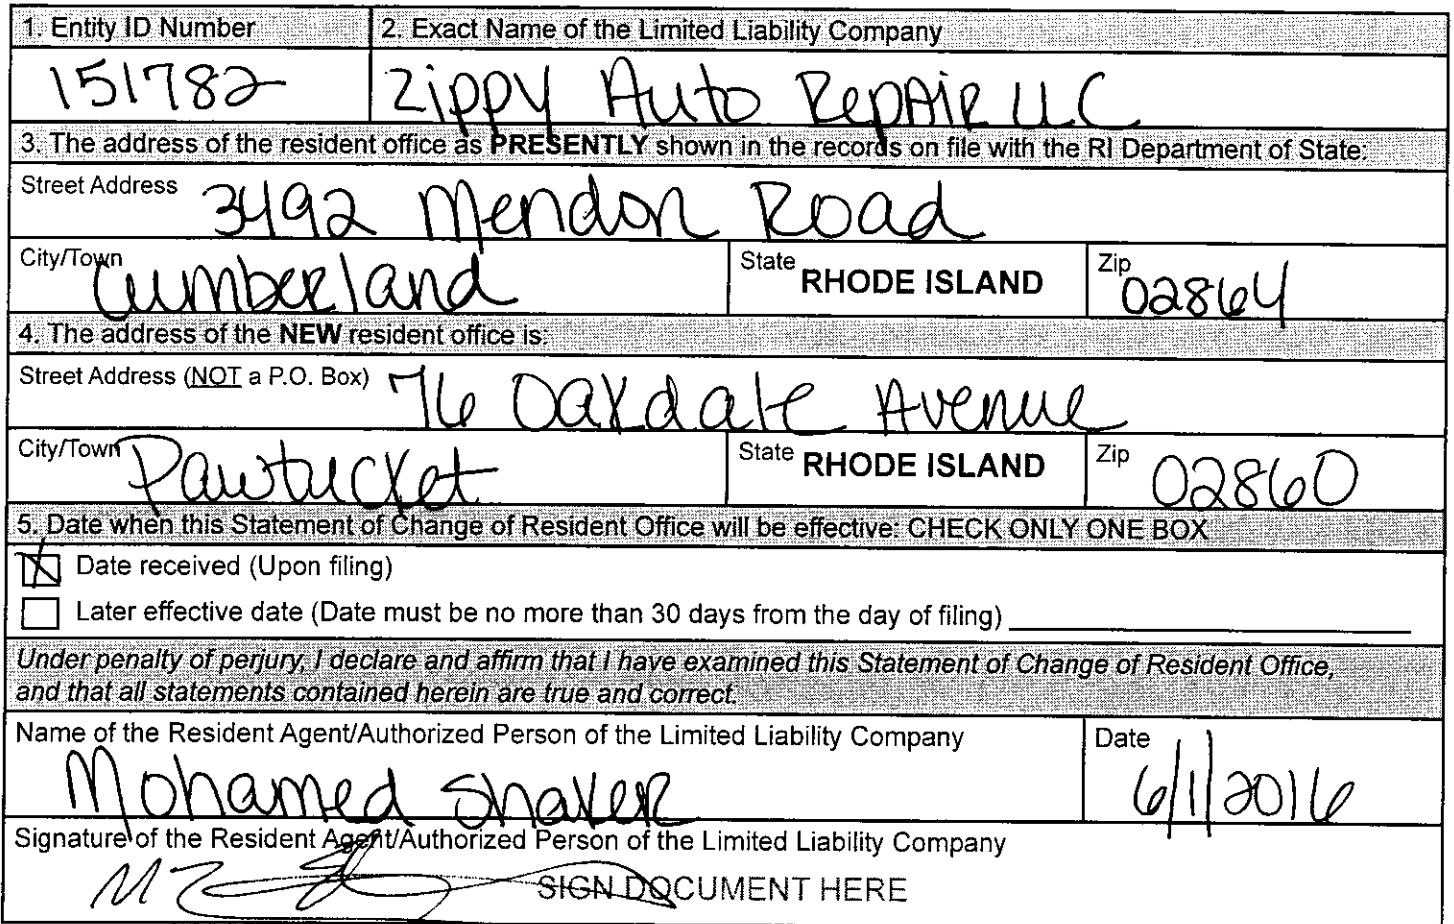 1. Entity ID Number 2. Exact Name of the Limited Liability Company
151782 Zippy Auto Repair LLC
3. The address of the resident office as PRESENTLY shown in the records on file with the RI Department of State:
Street Address 3492 Mendon Road
City/Town Cumberland State RHODE ISLAND Zip 02864
4. The address of the NEW resident office is:
Street Address (NOT a P.O. Box) 76 Oakdale Avenue
City/Town Pawtucket State RHODE ISLAND Zip 02860
5. Date when this Statement of Change of Resident Office will be effective: CHECK ONLY ONE BOX
Date received (Upon filing)
Later effective date (Date must be no more than 30 days from the day of filing)
Under penalty of perjury, I declare and affirm that I have examined this Statement of Change of Resident Office,
and that all statements contained herein are true and correct.
Name of the Resident Agent/Authorized Person of the Limited Liability Company Date
Mohamed Shaker 6/1/2016
Signature of the Resident Agent/Authorized Person of the Limited Liability Company
SIGN DOCUMENT HERE